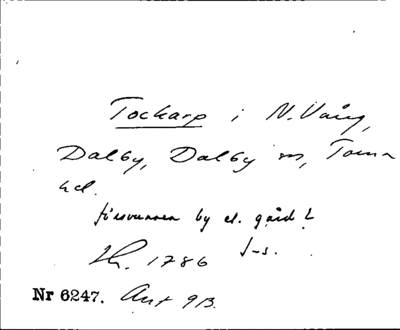 Tockarp i N. Vång,
Dalby, Dalby sn, Torna
hd.
försvunnen by el. gård?
1786 J-s.
Nr 6247. Ant 913.